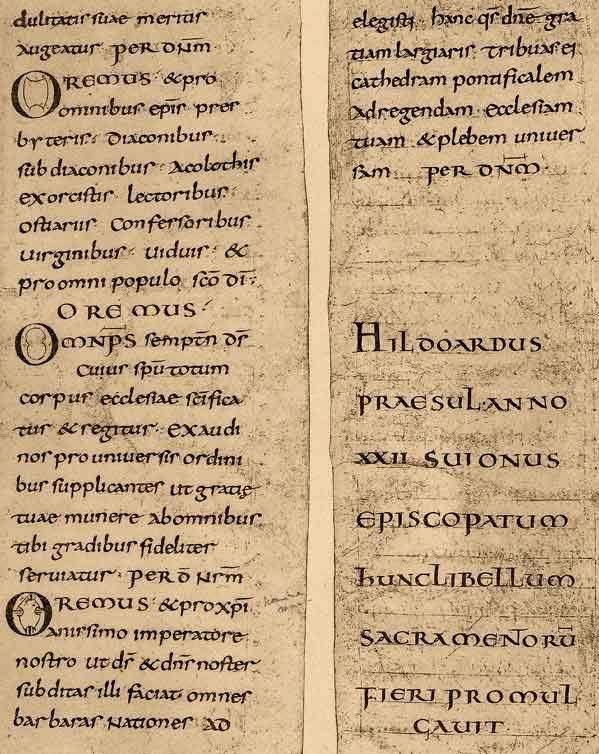 dulitatis suae meritis
augeatus per dnm
Oremus & pro
omnibus epis pres
byteris· Diaconibus·
subdiaconibus· Acolothis
exorcistis· lectoribus·
Ostiariis Confessoribus
Virginibus· Viduis· &
pro omni populo sco di·
OREMUS·
Omnps sempitn ds
Cuius spu totum
corpus ecclesiae scifica
tur & regitur· exaudi
nos pro universis ordini
bus supplicantes ut gratię
tuae munere ab omnibus
tibi gradibus fideliter
serviatur· per d nrm
Oremus· & pro xpi
anissimo imperatore
nostro ut ds & dns noster
subditas illi faciat omnes
barbaras Nationes AD
elegisti· hanc qs dne gra
tiam largiaris· tribuas ei
cathedram pontificalem
ad regendam· ecclesiam
tuam & plebem univer
sam per dnm·
HILDOARDUS
PRAESUL ANNO
XXII SUI ONUS
EPISCOPATUM
HUNC LIBELLUM
SACRAMENORU
FIERI PROMUL
GAVIT·